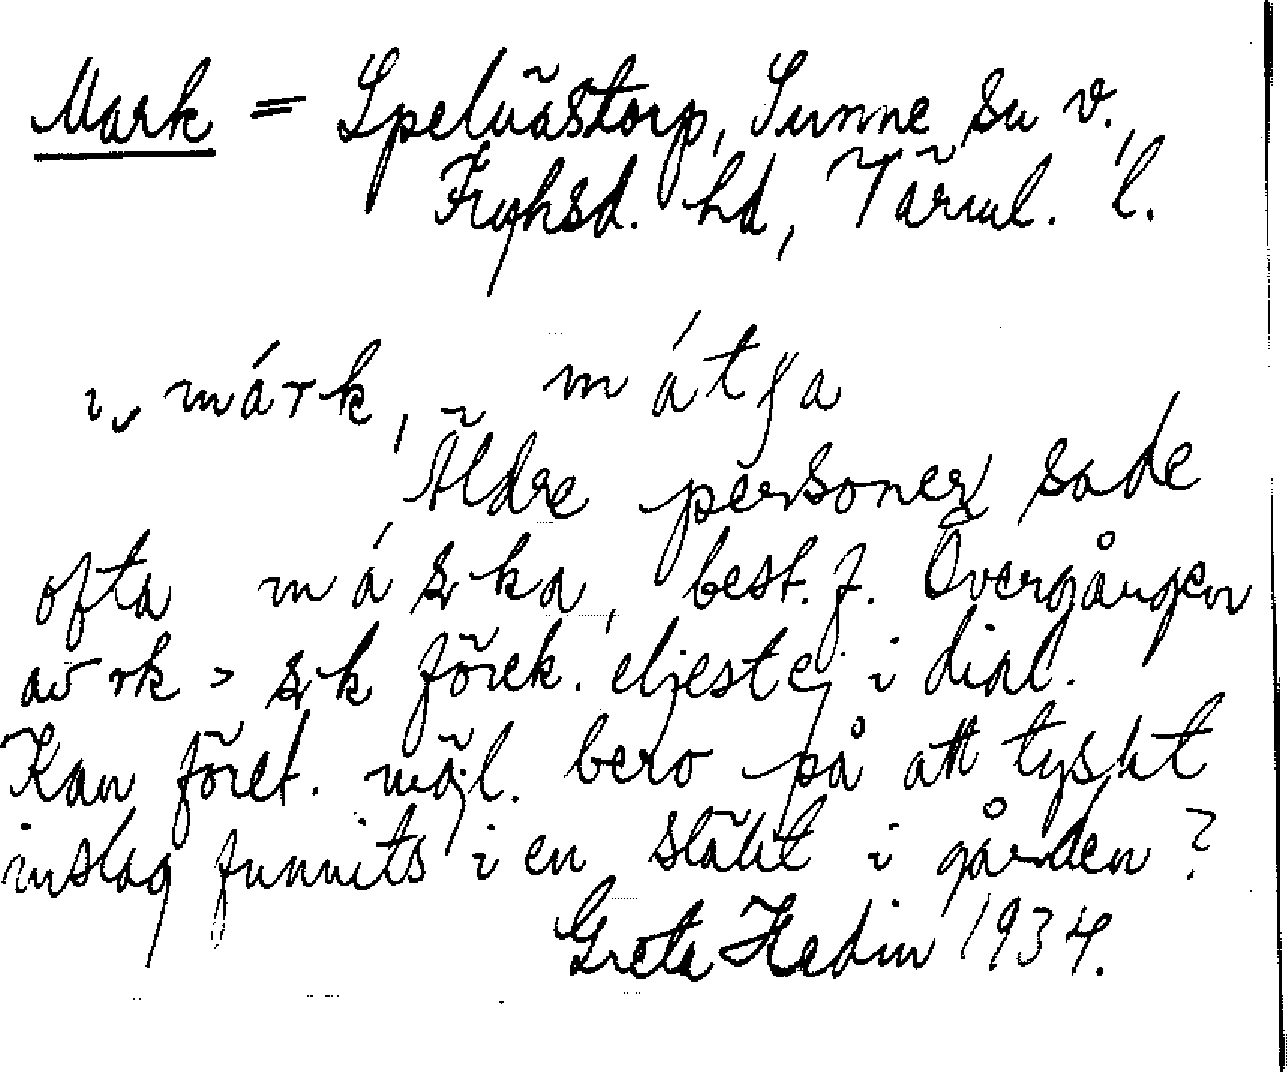 Mark = Spelnästorp, Sunne sn v.
Fryksd. hd, Värml. l.
i, márk, mátʃa
Äldre personer sade
ofta má rka, best. f. Övergången
av rk > rk förek. eljest ej i dial.
Kan föret. möjl. bero på att tyskt
inslag funnits i en släkt i gården?
Greta Hedin 1934.